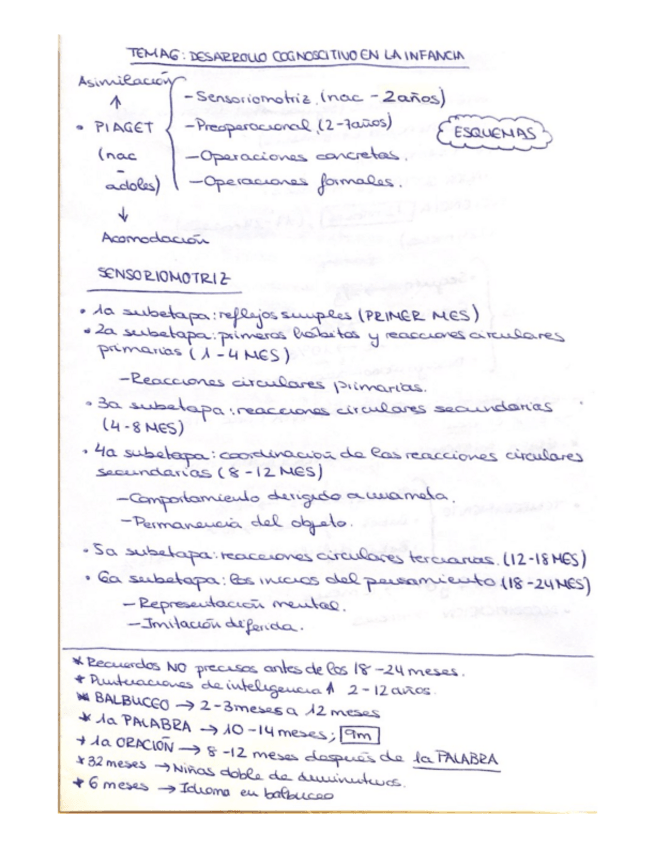 TEMA 6: DESARROLLO COGNOSCITIVO EN LA INFANCIA
Asimilación
↑
• PIAGET
(nac
-
adoles)
↓
Acomodación
- Sensoriomotriz. (nac - 2 años)
- Preoperacional. (2-7 años)
- Operaciones concretas.
- Operaciones formales.
ESQUEMAS
SENSORIOMOTRIZ
• 1a subetapa: reflejos simples (PRIMER MES)
• 2a subetapa: primeros hábitos y reacciones circulares
primarias (1-4 MES)
- Reacciones circulares primarias.
• 3a subetapa: reacciones circulares secundarias
(4-8 MES)
• 4a subetapa: coordinación de las reacciones circulares
secundarias (8-12 MES)
- Comportamiento dirigido a una meta.
- Permanencia del objeto.
• 5a subetapa: reacciones circulares terciarias. (12-18 MES)
• 6a subetapa: los inicios del pensamiento (18-24 MES)
- Representación mental.
- Imitación diferida.
* Recuerdos NO precisos antes de los 18-24 meses.
* Puntuaciones de inteligencia ↑ 2-12 años.
* BALBUCEO → 2-3 meses a 12 meses
* 1a PALABRA → 10-14 meses; 9m
* 1a ORACIÓN → 8-12 meses después de la PALABRA
* 32 meses → Niñas doble de diminutivos.
* 6 meses → Idioma en balbuceo